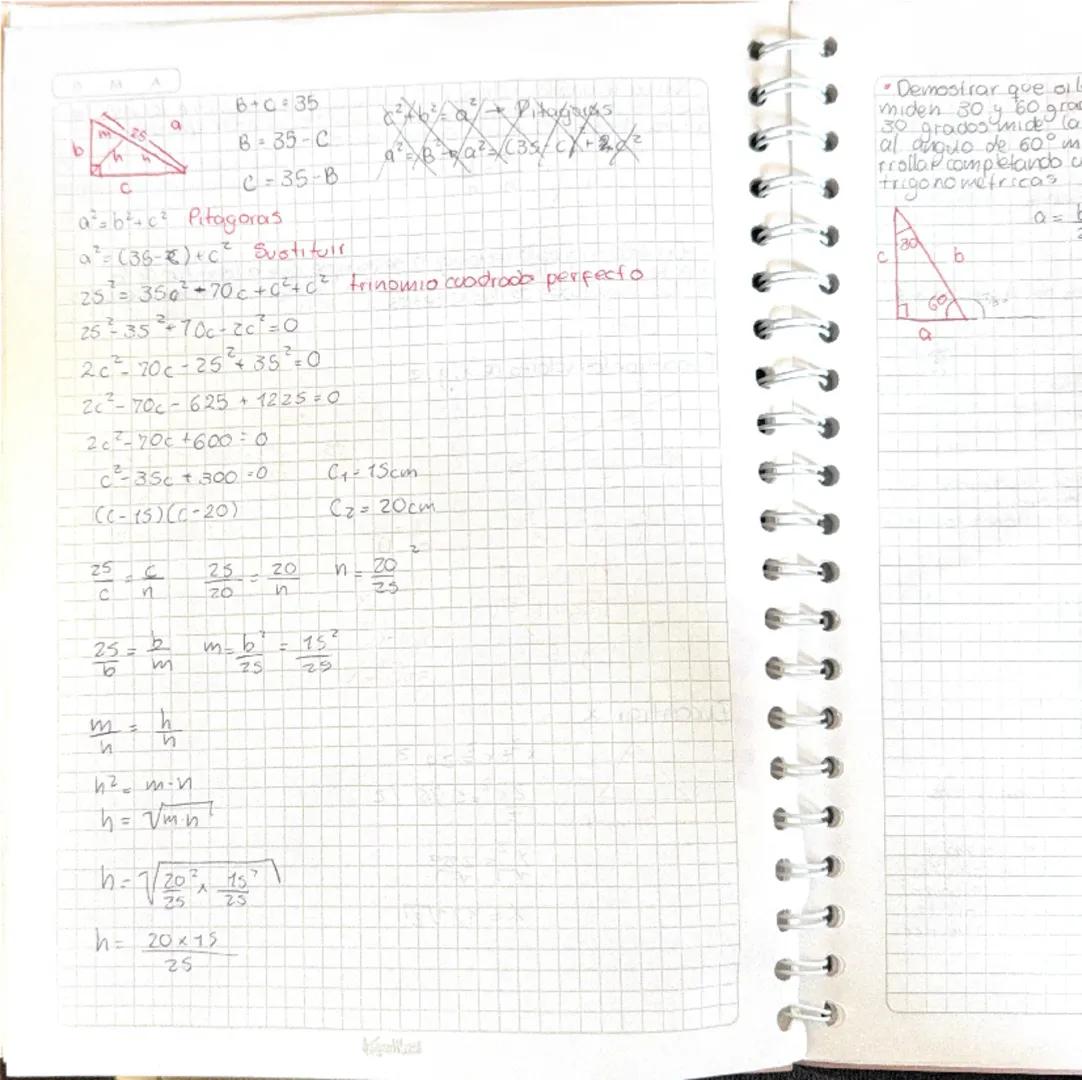 D M A
B+C=35
B=35-C
C=35-B
c²+b²=a² → Pitagoras
m 25 a
b h n
c
a²=b²+c² Pitagoras
a²=(35-c)+c² Sustituir
25²=35c²+70c+c²+c² trinomio cuadrado perfecto
25²-35²+70c-2c²=0
2c²-70c-25²+35²=0
2c²-70c-625+1225=0
2c²-70c+600=0
c²-35c+300=0 C₁=15cm
(c-15)(c-20) C₂=20cm
25/c = c/n 25/20 = 20/n n = 20²/25
25/b = b/m m = b²/25 = 15²/25
m/h = h/n
h²=m·n
h=√m·n
h=√20²/25 x 15²/25
h= 20x15/25
• Demostrar que
miden 30 y 60
30 grados mide la
al angulo de 60° m
rrollar completando
trigonometricas
a =
30
c b
60
a